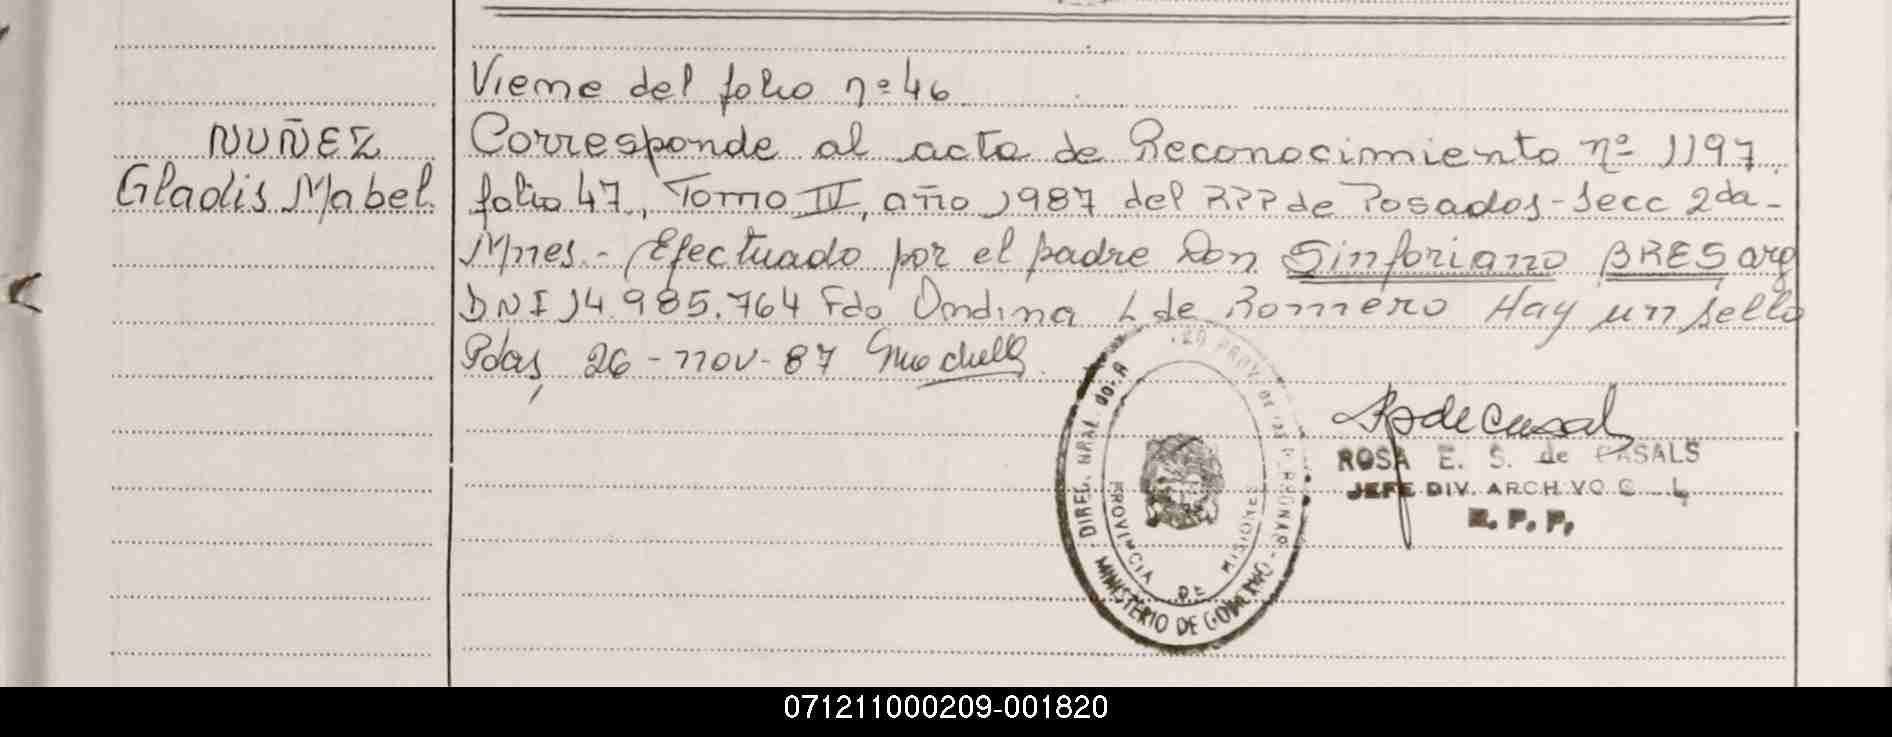 Viene del folio nº 46
NUÑEZ
Gladis Mabel.
Corresponde al acta de Reconocimiento nº 1197
folio 47, Tomo IV, año 1987 del RPP de Posadas - Secc 2da -
Mnes. - Efectuado por el padre Don Sinforiano BRES arg
DNI 14.985.764 Fdo Ondina L de Romero Hay un sello
Pdas, 26 - nov - 87
ROSA E. S. de CASALS
JEFE DIV. ARCH VO G L
R. P. P.
DIREC. GRAL. DE
PROV. DE LAS PERSONAS
MINISTERIO DE GOBIERNO
PROVINCIA DE MISIONES
071211000209-001820